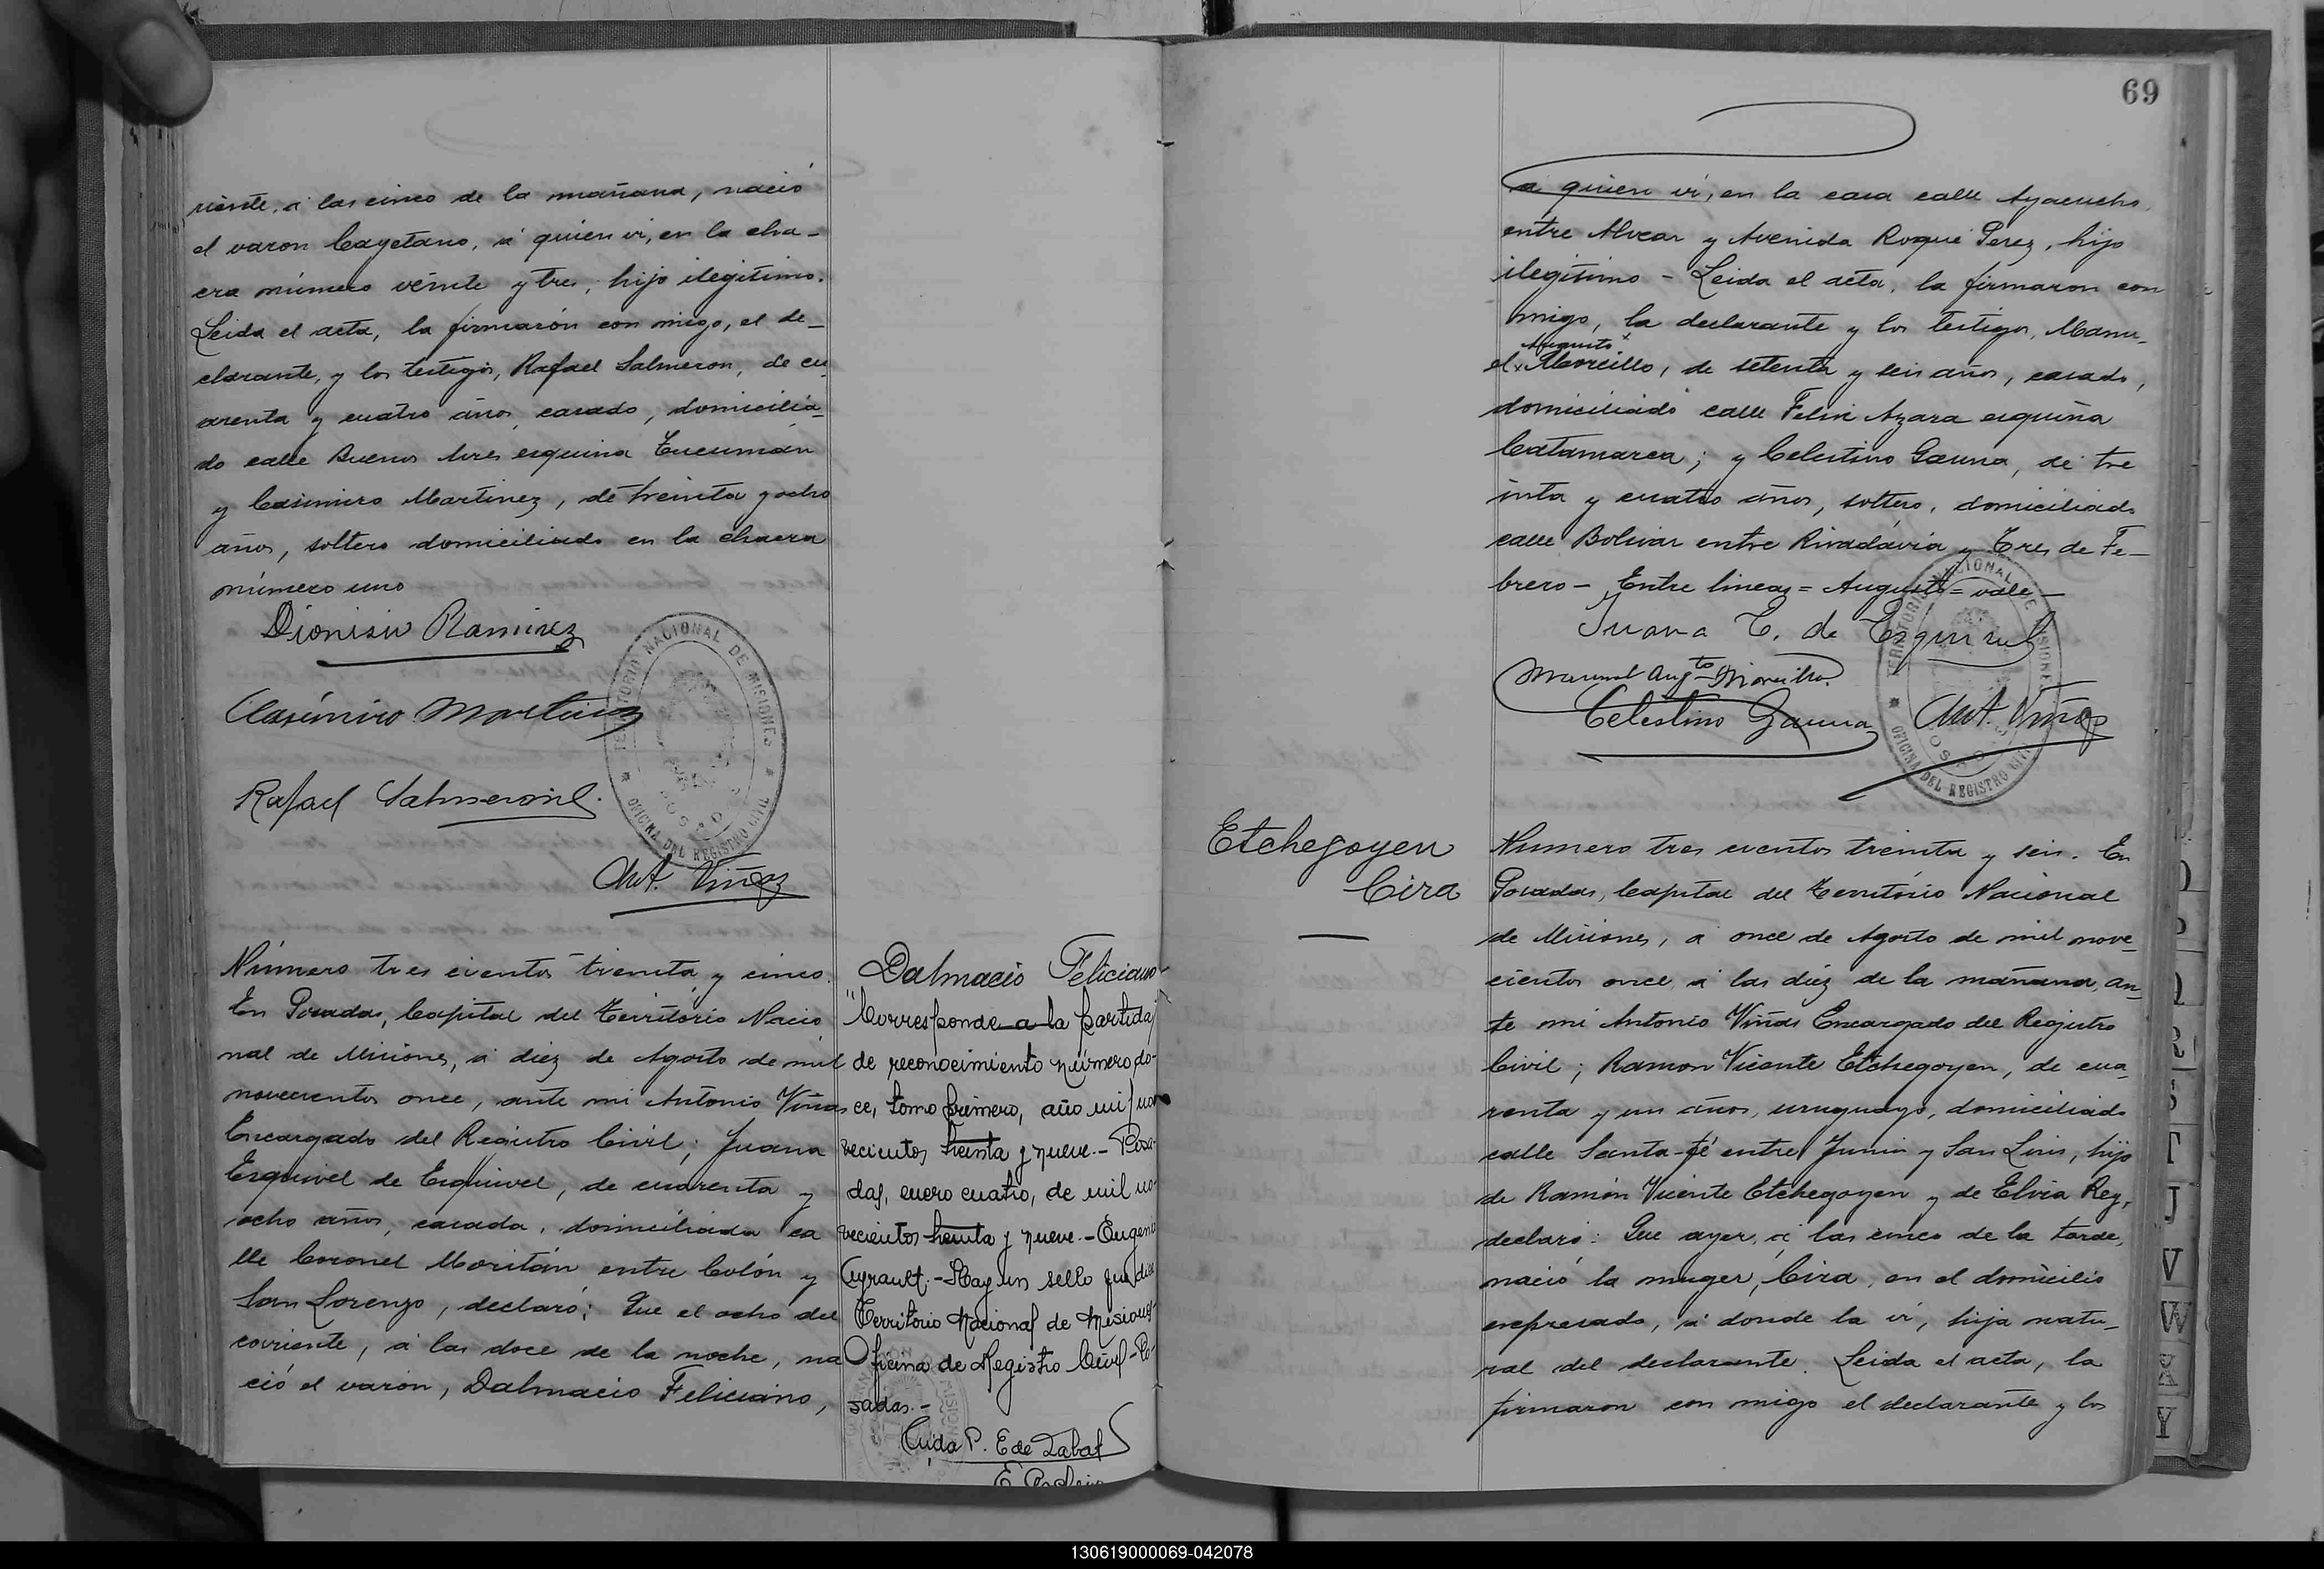 riente, á las cinco de la mañana, nació
el varon Cayetano, á quien vi, en la cha-
cra número veinte y tres, hijo ilegitimo.
Leida el acta, la firmarón con migo, el de-
clarante, y los testigos, Rafael Salmeron, de cu
arenta y cuatro años, casado, domicilia-
do calle Buenos Aires esquina Tucumán
y Casimiro Martinez, de treinta y ocho
años, soltero domiciliado en la chacra
número uno
Dionisio Ramirez
Casimiro Martinez
Rafael Salmeron
TERRITORIO NACIONAL DE MISIONES
OFICINA DEL REGISTRO CIVIL
POSADAS
Ant. Viñas
Número tres cientos treinta y cinco.
En Posadas, Capital del Território Nacio
nal de Misiones, á diez de Agosto de mil
novecientos once, ante mi Antonio Viñas
Encargado del Registro Civil; Juana
Esquivel de Esquivel, de cuarenta y
ocho años, casada, domiciliada ca
lle Coronel Moritán entre Colón y
San Lorenzo, declaró: Que el ocho del
corriente, á las doce de la noche, na
ció el varón, Dalmacio Feliciano,
Dalmacio Feliciano
"Corresponde a la partida
de reconocimiento número do-
ce, tomo primero, año mil no-
vecientos treinta y nueve.- Posa-
das, enero cuatro, de mil no-
vecientos treinta y nueve.- Eugenio
Ayrault.- Hay un sello que dice
Territorio Nacional de Misiones-
Oficina de Registro Civil-Po-
sadas.-
69
á quien vi, en la casa calle Ayacucho
entre Alvear y Avenida Roque Perez, hijo
ilegitimo - Leida el acta, la firmaron con
migo, la declarante y los testigos, Manu-
Augusto
el Morcillo, de setenta y seis años, casado,
domiciliado calle Felix Azara esquina
Catamarca; y Celestino Gauna, de tre
inta y cuatro años, soltero, domiciliado
calle Bolivar entre Rivadavia y Tres de Fe-
brero - Entre lineas = Augusto = vale -
Juana E. de Esquivel
Manuel Augto Morcillo
Celestino Gauna
Ant. Viñas
TERRITORIO NACIONAL DE MISIONES
OFICINA DEL REGISTRO CIVIL
POSADAS
Etchegoyen
Cira
Numero tres cientos treinta y seis. En
Posadas, Capital del Território Nacional
de Misiones, á once de Agosto de mil nove-
cientos once, á las diez de la mañana, an-
te mi Antonio Viñas Encargado del Registro
Civil; Ramon Vicente Etchegoyen, de cua-
renta y un años, uruguayo, domiciliado
calle Santa-fé entre Junin y San Luis, hijo
de Ramón Vicente Etchegoyen y de Elvia Rey,
declaró: Que ayer, á las cinco de la tarde,
nació la muger, Cira, en el domicilio
expresado, á donde la vi, hija natu-
ral del declarante. Leida el acta, la
firmaron con migo el declarante y los
R
S
T
J
V
W
X
Y
130619000069-042078